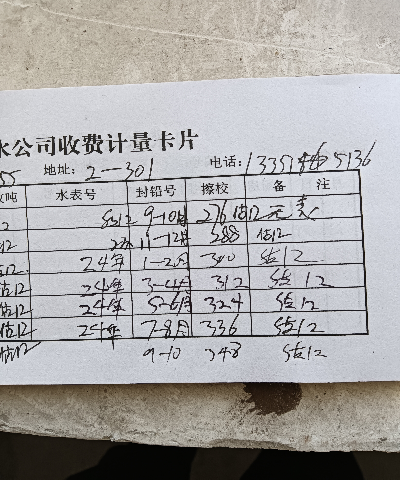 水公司收费计量卡片
55 地址: 2—301 电话: 133 5136
吨 水表号 封铅号 擦校 备 注
12 估12 9-10月 276 估12元
估12 11-12月 288 估12
估12 24年 1-2月 300 估12
估12 24年 3-4月 312 估12
估12 24年 5-6月 324 估12
估12 24年 7-8月 336 估12
估12 9-10 348 估12